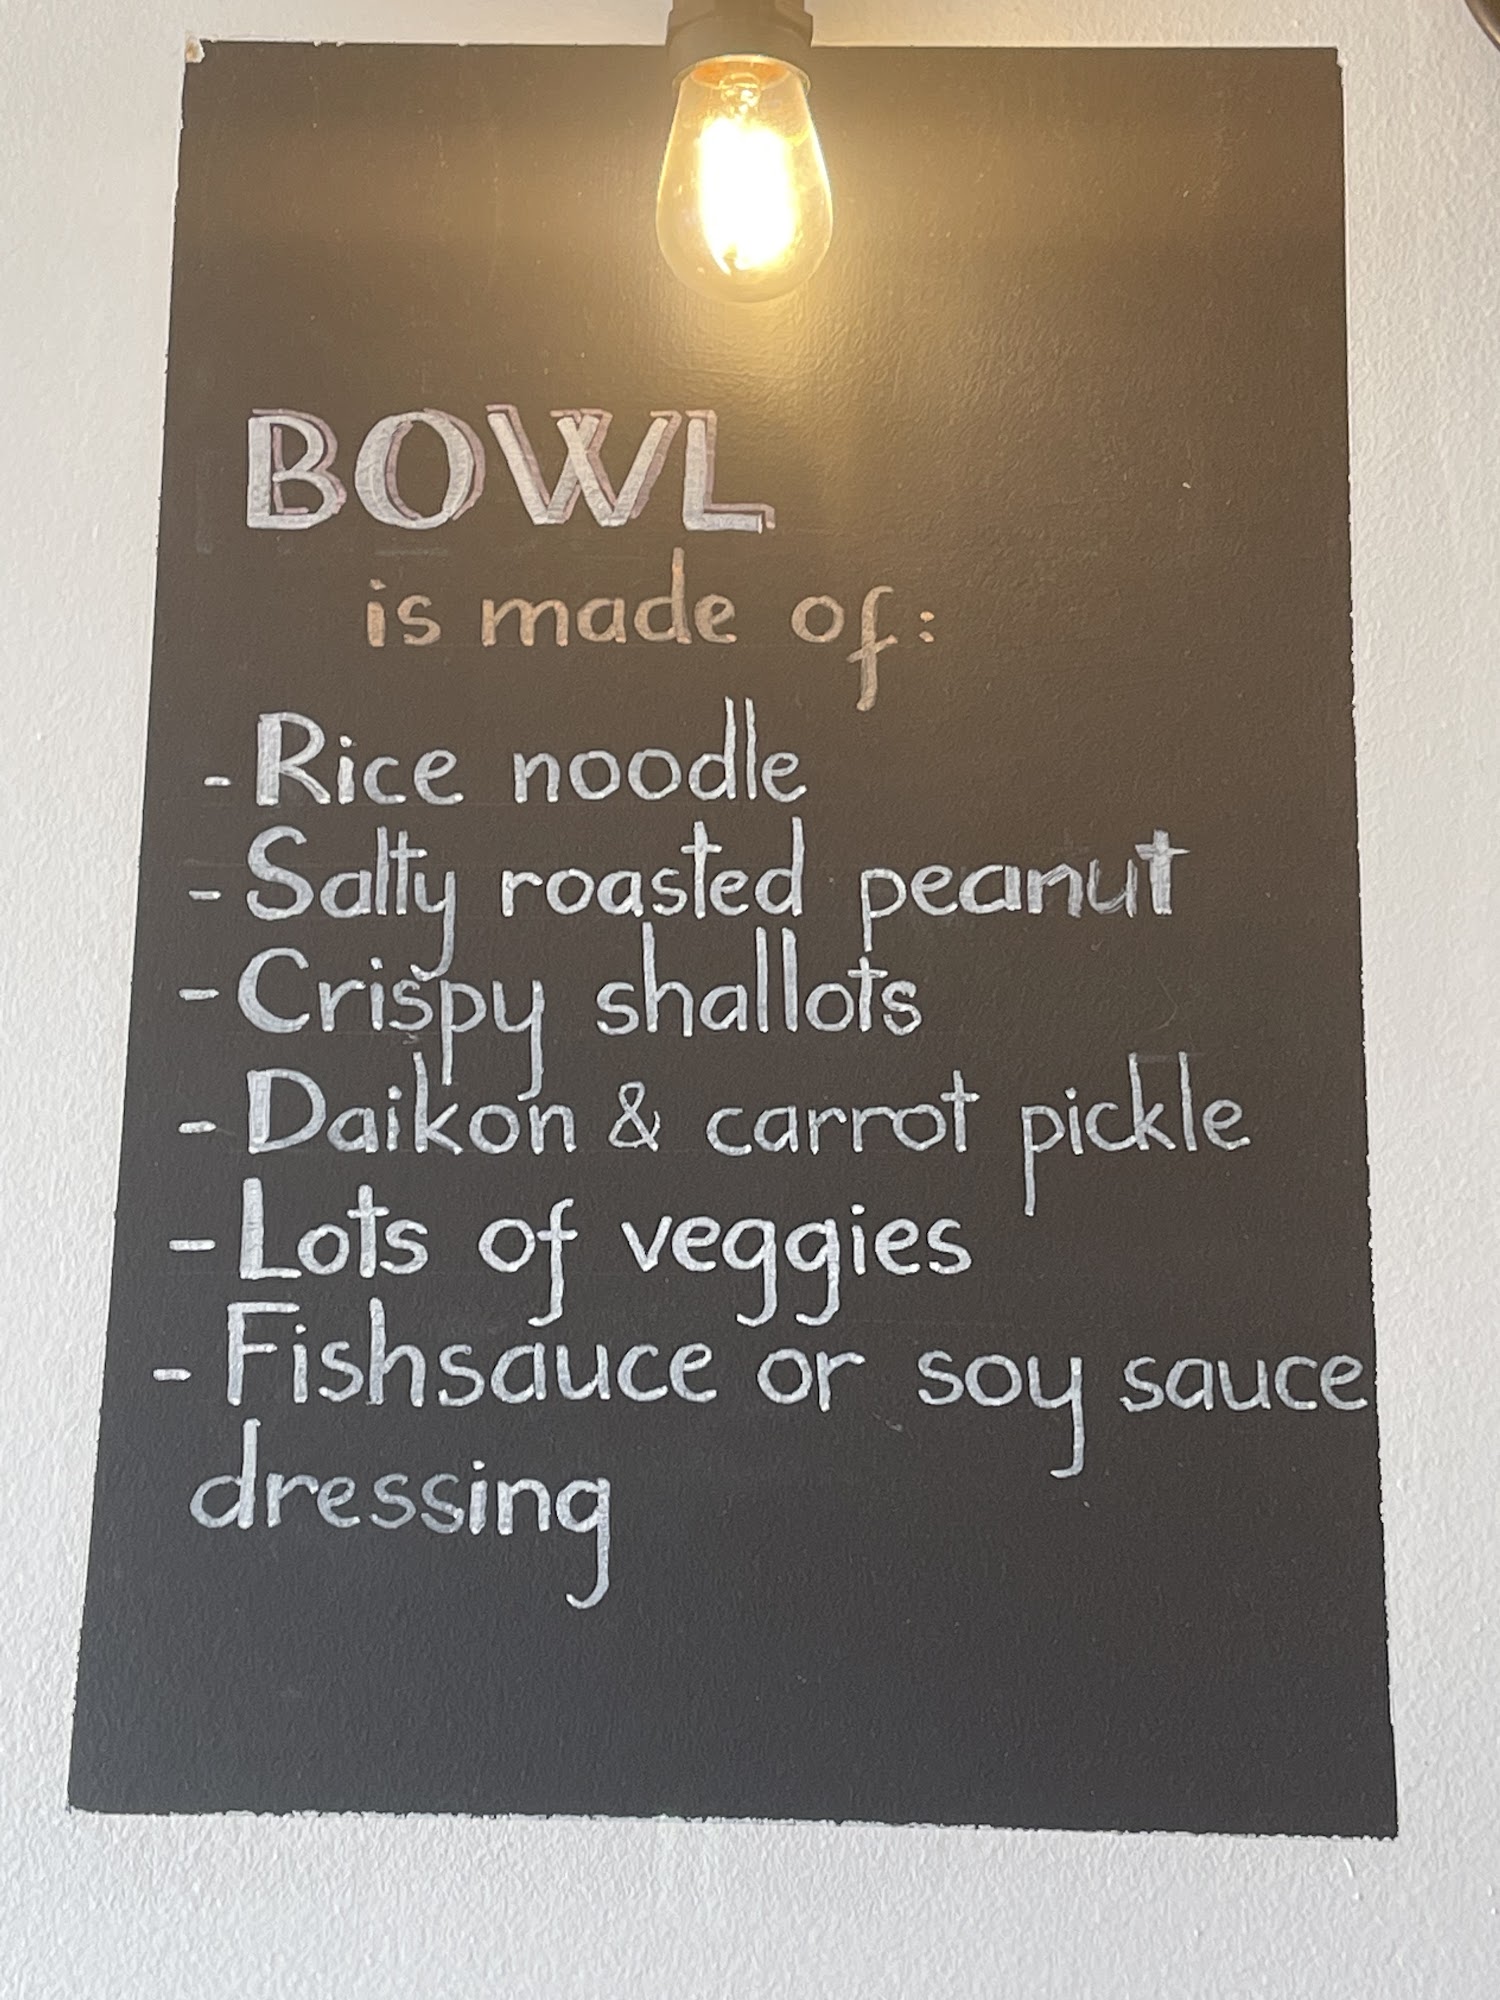 BOWL
is made of:
- Rice noodle
- Salty roasted peanut
- Crispy shallots
- Daikon & carrot pickle
- Lots of veggies
- Fishsauce or soy sauce
dressing